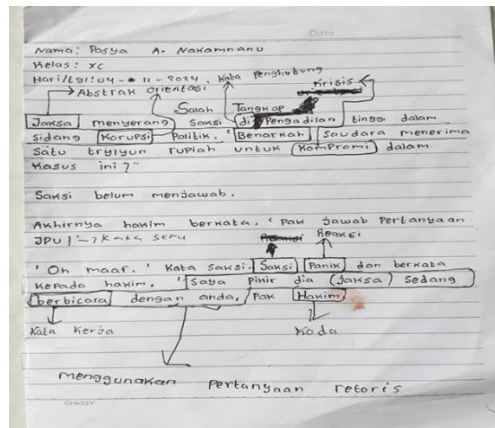 Date
Nama: Pasya A. Nakamnanu
Kelas: xc
Hari/tgl: 04 - 11 - 2024, Kata Penghubung
Abstrak orientasi Krisis
Salah Tangkap
Jaksa menyerang saksi di Pengadilan tinggi dalam
sidang Korupsi Politik. 'Benarkah saudara menerima
satu trylyun rupiah untuk Kompromi dalam
Kasus ini?"
Saksi belum menjawab.
Akhirnya hakim berkata. 'Pak jawab Pertanyaan
JPU!' → Kata seru Reaksi
'Oh maaf.' Kata saksi. Saksi Panik dan berkata
kepada hakim. 'Saya Pikir dia (jaksa) sedang
berbicara dengan anda, Pak Hakim
Kata Kerja Koda
menggunakan Pertanyaan retoris